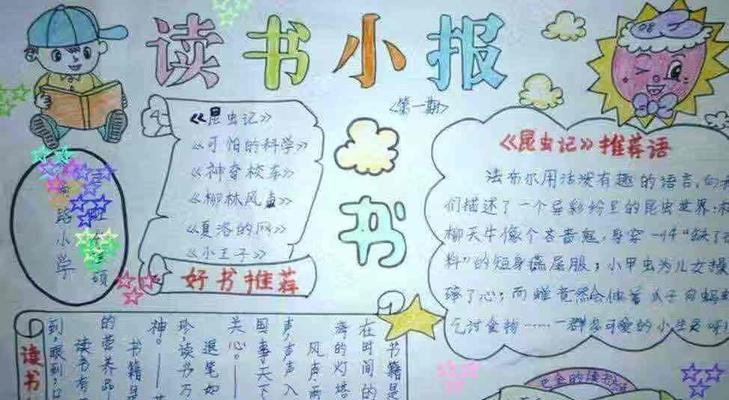 读书小报
<第一期>
《昆虫记》
《可怕的科学》
《神奇校车》
《柳林风声》
《夏洛的网》
《小王子》
好书推荐
书
路小学
硕
《昆虫记》推荐语
法布尔用活泼有趣的语言,向我
们描述了一个异彩纷呈的昆虫世界:
柳天牛像个吝啬鬼,身穿一件“缺了
料”的短身燕尾服;小甲虫为儿女操
碎了心;而蝉竟然会伸着爪子向蚂
乞讨食物……一群多可爱的小生灵呀!
读书
书籍是
在时间的
海的灯塔
风声雨
声声入
国事天下
关心。——
退笔如
珍,读书万
神。——
书籍是
的营养品
读书有
到,眼到,口